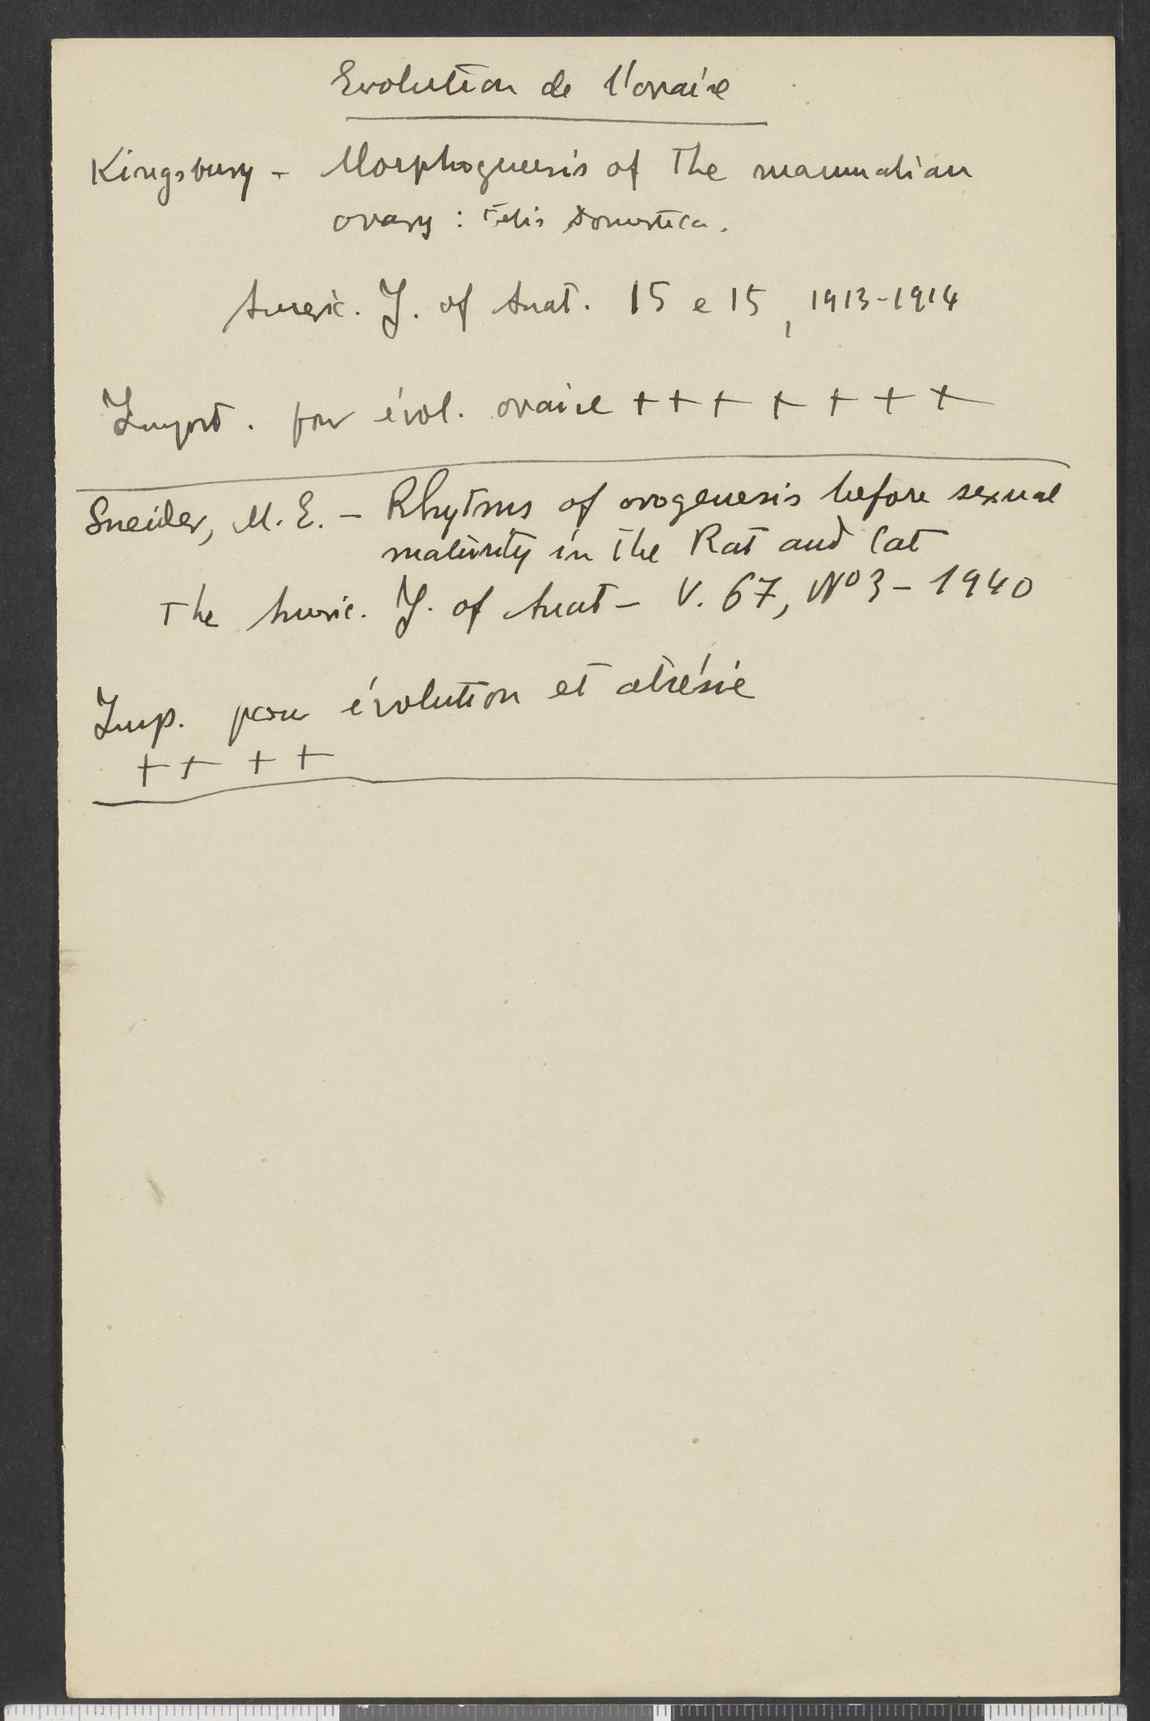 Evolution de l'ovaire
Kingsbury - Morphogenesis of the mammalian
ovary : Felis Domestica.
Americ. J. of Anat. 15 e 15, 1913-1914
Import. pour évol. ovaire + + + + + + +
Sneider, M. E. - Rhytms of ovogenesis before sexual
maturity in the Rat and Cat
The Americ. J. of Anat - V. 67, Nº 3 - 1940
Imp. pour évolution et atrésie
+ + + +